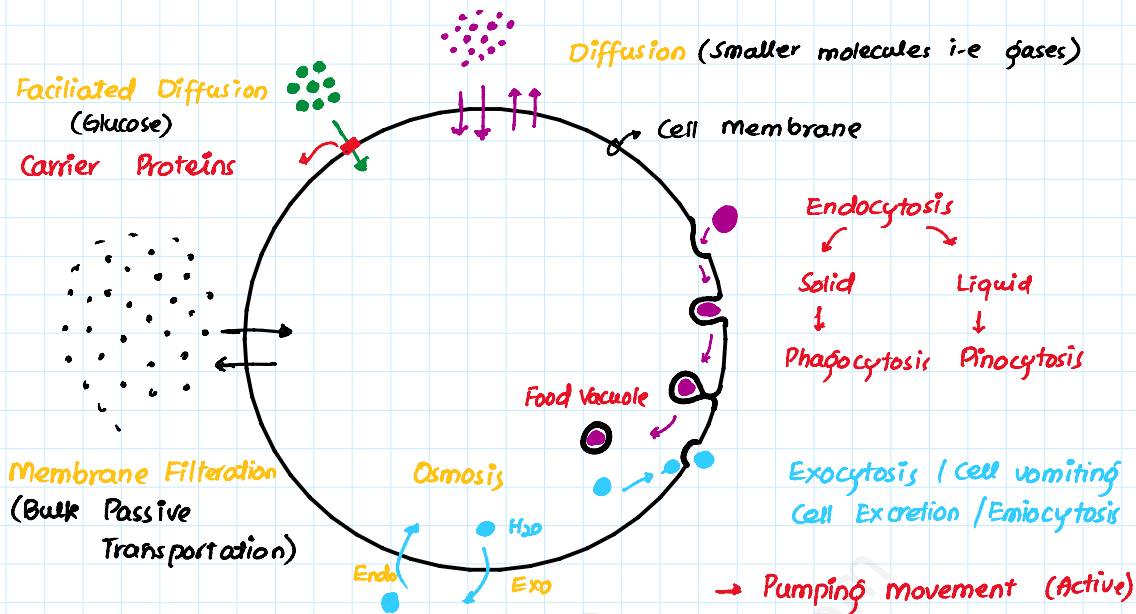 Diffusion (Smaller molecules i-e gases)
Faciliated Diffusion
(Glucose)
Carrier Proteins
Cell Membrane
Endocytosis
Solid
Liquid
Phagocytosis
Pinocytosis
Food Vacuole
Membrane Filteration
(Bulk Passive
Transportation)
Osmosis
H20
Endo
Exo
Exocytosis / Cell vomiting
Cell Excretion / Emiocytosis
→ Pumping movement (Active)